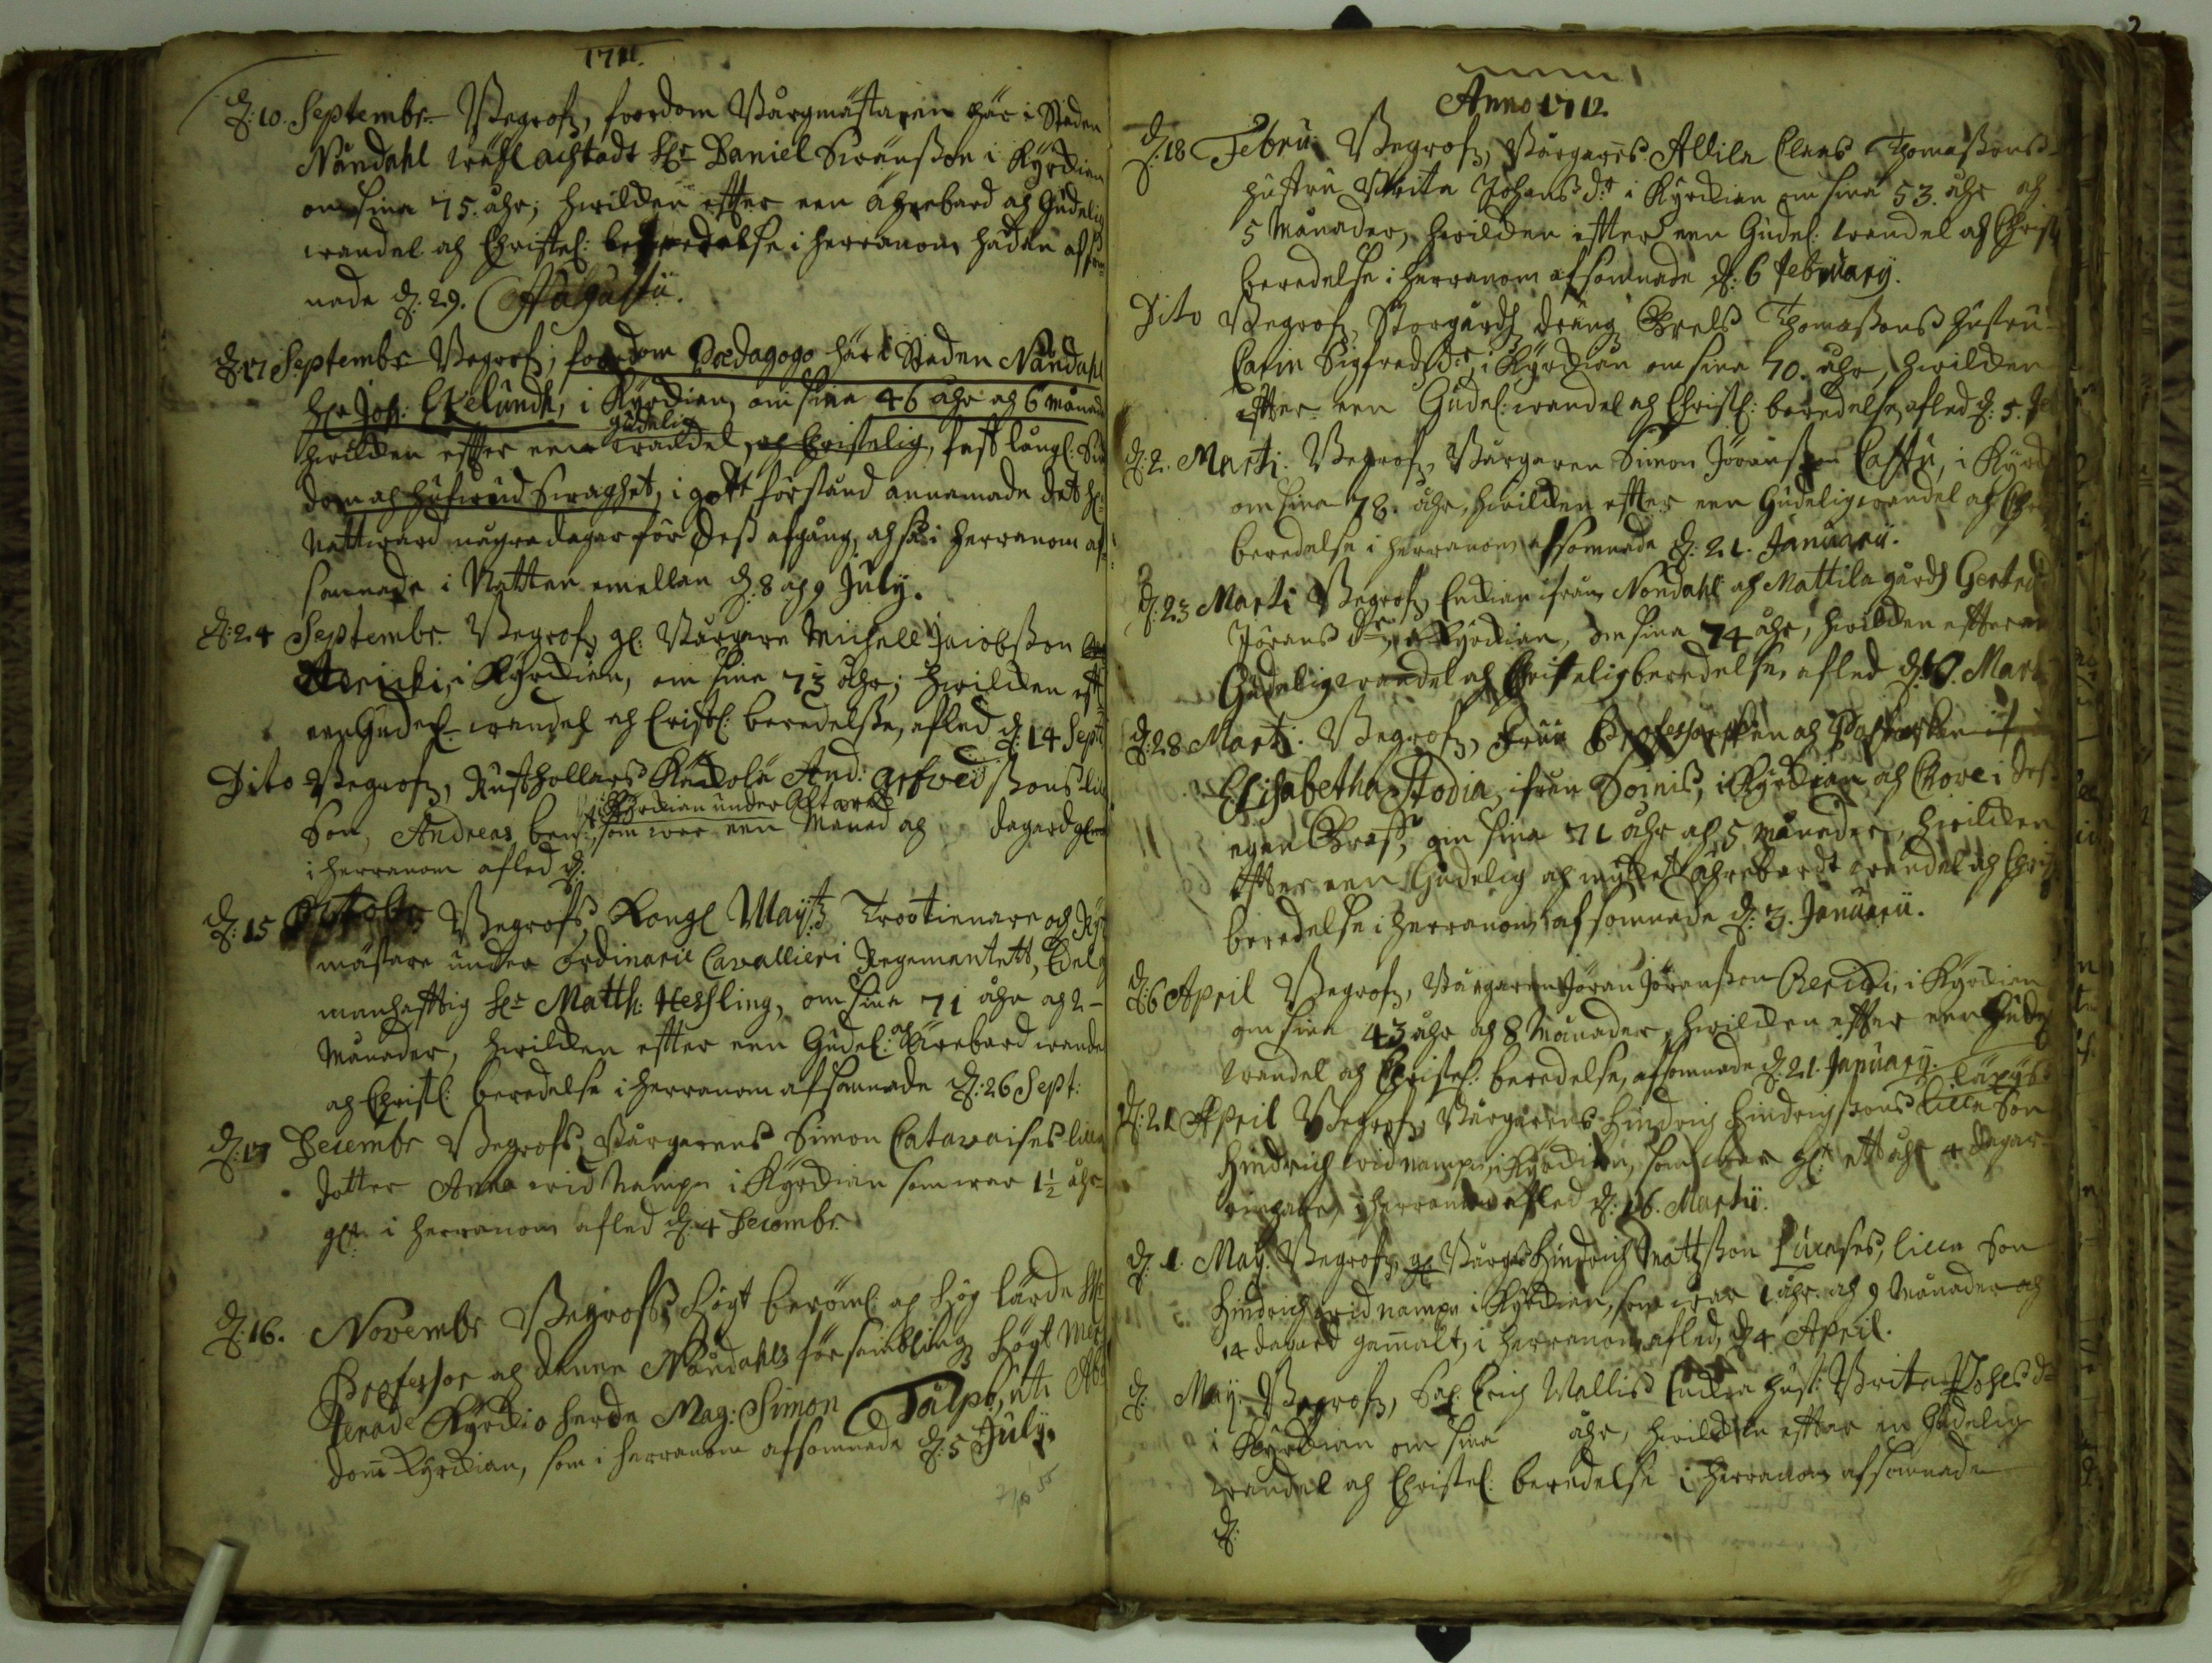 1711.
d: 10. Septembr. Begrofz, foordom Bårgmästaren här i Staden
Nåndahl wähl achtadt Hr Daniel Swänßon i Kyrckian
om sina 75. åhr; hwilcken efter een ährebard och Gudelig
wandel och Christel: beredelse i herranom hädan afsom-
nade d: 29. Augustii.
d: 17 Septembr Begrofz, foordom Pædagogo här i Staden Nåndahl
Hr Joh: Ekelundh, i Kyrckian, om sina 46 åhr och 6 månad
gudelig
hwilcken efter een wandel, och Christelig, fast långl: Siu
dom och hufwud swaghet, i gott förstånd annamade det h:
Nattward några dagar för deß afgång, och så i herranom af-
somnade i Natten emellan d: 8 och 9 July.
d: 24 Septembr. Begrofz gl: Bårgare Michell Jacobßon
i Kyrckian, om sina 73 åhr; hwilcken eft
een Gudel: wandel och Cristl: beredelse, afled d: 14 Sept
Dito Begrofz, Rusthollars And: ßons lilla
i Kyrckian under Altaret
Son, Andreas ben: som war een Månad och dagar gl:
i herranom afled d:
d: 15 Octobr Begrofz, Kongl Mayttz Trootienare och Ryt
mästare under ordinarie Cavallieri Regementett, Edel
manhafftig Hr Matth: Hessling, om sina 71 åhr och 2
Månader, hwilcken efter een Gudel: och ärebard wandel
och Christl: beredelse i herranom afsomnade d: 26 Sept:
d: 17 Decembr Begrofz Bårgarens Simon Catavaises lilla
dotter Anna wid Nampn i Kyrckian som war 1½ åhr
glt i herranom afled d: 4 Decembr.
d: 16. Novembr Begrofz, Högt beröml: och Hög lärde Hr
Professor och denne Nåndahls församblings Högt Mer
terade Kyrckio herde Mag: Simon Tålpo, uti Åbo
dom Kyrckian, som i herranom afsomnade d: 5 July.
Anno 1712.
d: 18 Febru. Begrofz, Bårgarens Allila Claas Thomaßons
hustru Brita Johans dr i Kyrckian om sina 53. åhr och
5 Månader, hwilcken efter een Gudel: wandel och Christ
beredelse i herranom afsomnade d: 6 february.
Dito Begrofz, Storgårdz dräng Brels Thomaßons hustru
Carin Sigfredz dr, i Kyrckian om sina 70. åhr, hwilcken
efter een Gudel: wandel och Christl: beredelse, afled d: 5.
d: 2. Marti. Begrofz, Bårgaren Simon Jöranßon Castu, i Kyrck
om sina 78. åhr, hwilcken efter een Gudelig wandel och Chr
beredelse i herranom afsomnade d: 21. Januarii.
d: 23 Marti Begrofz, Enckian ifrån Nondahl och Mattila gårdz Gertrud
Jörans dr, i Kyrckian, om sina 74 åhr, hwilcken efter een
Gudelig wandel och Christelig beredelse, afled d: 10. Mart
d: 28 Marti. Begrofz, Fruu Professorskan och Pastorskan
Elisabetha Stodia, ifrån Soinis, i Kyrckian och Chore i deß
egen Graf, om sina 71 åhr och 5 månader, hwilcken
efter een Gudelig och mycket ährebardt wandel och Chris
beredelse i herranom afsomnade d: 3. Januarii.
d: 6 April Begrofz, Bårgaren Jöran Jöranßon i Kyrckian
om sina 43 åhr och 8 Månader, hwilcken efter een Gude
wandel och Christel: beredelse, afsomnade d: 21. January.
d: 21 April Begrofz, Bårgarens Hindrich Hindrichßons lilla Son
Hindrich wid nampn, i Kyrckian, som war gl: ett åhr 4 dagar
i herranom afled d: 16. Martii.
d: 1. May. Begrofz, gl Bårg: Hindrich Mattßon lilla Son
Hindrich wid nampn i Kyrckian, som war 1 åhr och 9 Månader och
14 dagard gammalt, i herranom afled, d: 4. April.
d: May. Begrofz, Sal. Erich Wallis Enckia hust: Brita
i Kyrckian om sina åhr, hwilcken efter en Gudelig
wandel och Christel: beredelse i herranom afsomnade
d: